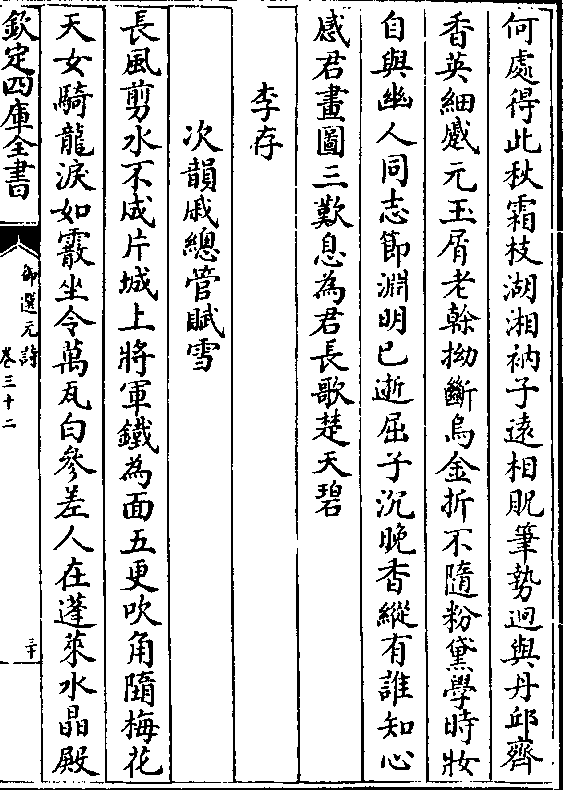 何處得此秋霜枝湖湘衲子逺相貺筆勢迥與丹邱齊
香英細蹙元玉屑老榦拗斷烏金折不隨粉黛學時妝
自與幽人同志節淵明已逝屈子沉晚香縱有誰知心
感君畫圖三歎息為君長歌楚天碧
李存
次韻戚總管賦雪
長風剪水不成片城上將軍鐵為面五更吹角隨梅花
天女騎龍淚如霰坐令萬瓦白參差人在蓬萊水晶殿
欽定四庫全書
御選元詩
卷三十二
三十